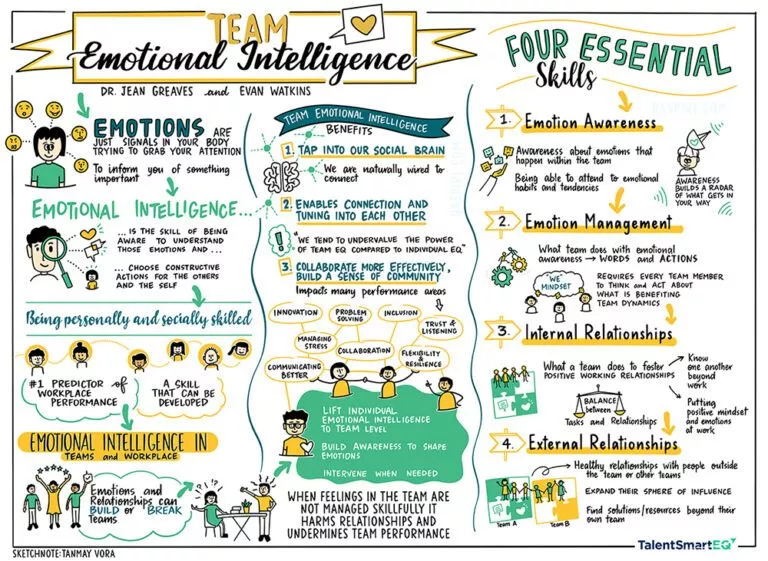 TEAM
Emotional Intelligence
DR. JEAN GREAVES and EVAN WATKINS
EMOTIONS ARE
JUST SIGNALS IN YOUR BODY
TRYING TO GRAB YOUR ATTENTION
To inform you of something
important
EMOTIONAL INTELLIGENCE...
... IS THE SKILL OF BEING
AWARE TO UNDERSTAND
THOSE EMOTIONS AND ...
... CHOOSE CONSTRUCTIVE
ACTIONS FOR THE OTHERS
AND THE SELF
Being personally and socially skilled
#1 PREDICTOR of
WORKPLACE
PERFORMANCE
A SKILL
THAT CAN BE
DEVELOPED
EMOTIONAL INTELLIGENCE IN
TEAMS and WORKPLACE
Emotions and
Relationships can
BUILD or BREAK
teams
SKETCHNOTE: TANMAY VORA
TEAM EMOTIONAL INTELLIGENCE
BENEFITS
1. TAP INTO OUR SOCIAL BRAIN
We are naturally wired to
connect
2. ENABLES CONNECTION AND
TUNING INTO EACH OTHER
"WE TEND TO UNDERVALUE THE POWER
OF TEAM EQ COMPARED TO INDIVIDUAL EQ"
3. COLLABORATE MORE EFFECTIVELY,
BUILD A SENSE OF COMMUNITY
Impacts many performance areas
INNOVATION
PROBLEM
SOLVING
INCLUSION
TRUST &
LISTENING
MANAGING
STRESS
COLLABORATION
FLEXIBILITY
& RESILIENCE
COMMUNICATING
BETTER
LIFT INDIVIDUAL
EMOTIONAL INTELLIGENCE
TO TEAM LEVEL
BUILD AWARENESS TO SHAPE
EMOTIONS
INTERVENE WHEN NEEDED
WHEN FEELINGS IN THE TEAM ARE
NOT MANAGED SKILLFULLY IT
HARMS RELATIONSHIPS AND
UNDERMINES TEAM PERFORMANCE
FOUR ESSENTIAL
Skills
1. Emotion Awareness
Awareness about emotions that
happen within the team
Being able to attend to emotional
habits and tendencies
AWARENESS
BUILDS A RADAR
OF WHAT GETS IN
YOUR WAY
2. Emotion Management
What team does with emotional
awareness → WORDS and ACTIONS
'WE'
MINDSET
REQUIRES EVERY TEAM MEMBER
TO THINK and ACT ABOUT
WHAT IS BENEFITING
TEAM DYNAMICS
3. Internal Relationships
What a team does to foster
POSITIVE WORKING RELATIONSHIPS
Know
one another
beyond
work
BALANCE
between
Tasks and Relationships
Putting
positive mindset
and emotions
at work
4. External Relationships
Healthy relationships with people outside
the team or other teams
EXPAND THEIR SPHERE OF INFLUENCE
Find solutions/resources beyond their
own team
TEAM A
TEAM B
TalentSmartEQ